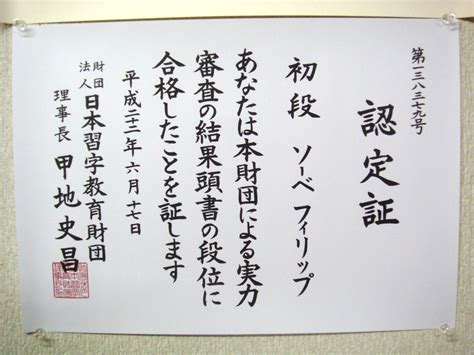 第一三八三七九号
認定証
初段 ソーベ フィリップ
あなたは本財団による実力
審査の結果頭書の段位に
合格したことを証します
平成二十二年六月十七日
財団法人 日本習字教育財団
理事長 甲地史昌